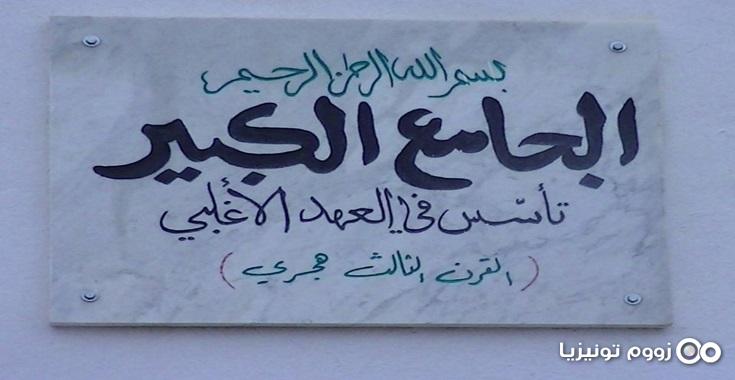 بسم الله الرحمن الرحيم
الجامع الكبير
تأسّس في العهد الأغلبي
(القرن الثالث هجري)
زووم تونيزيا